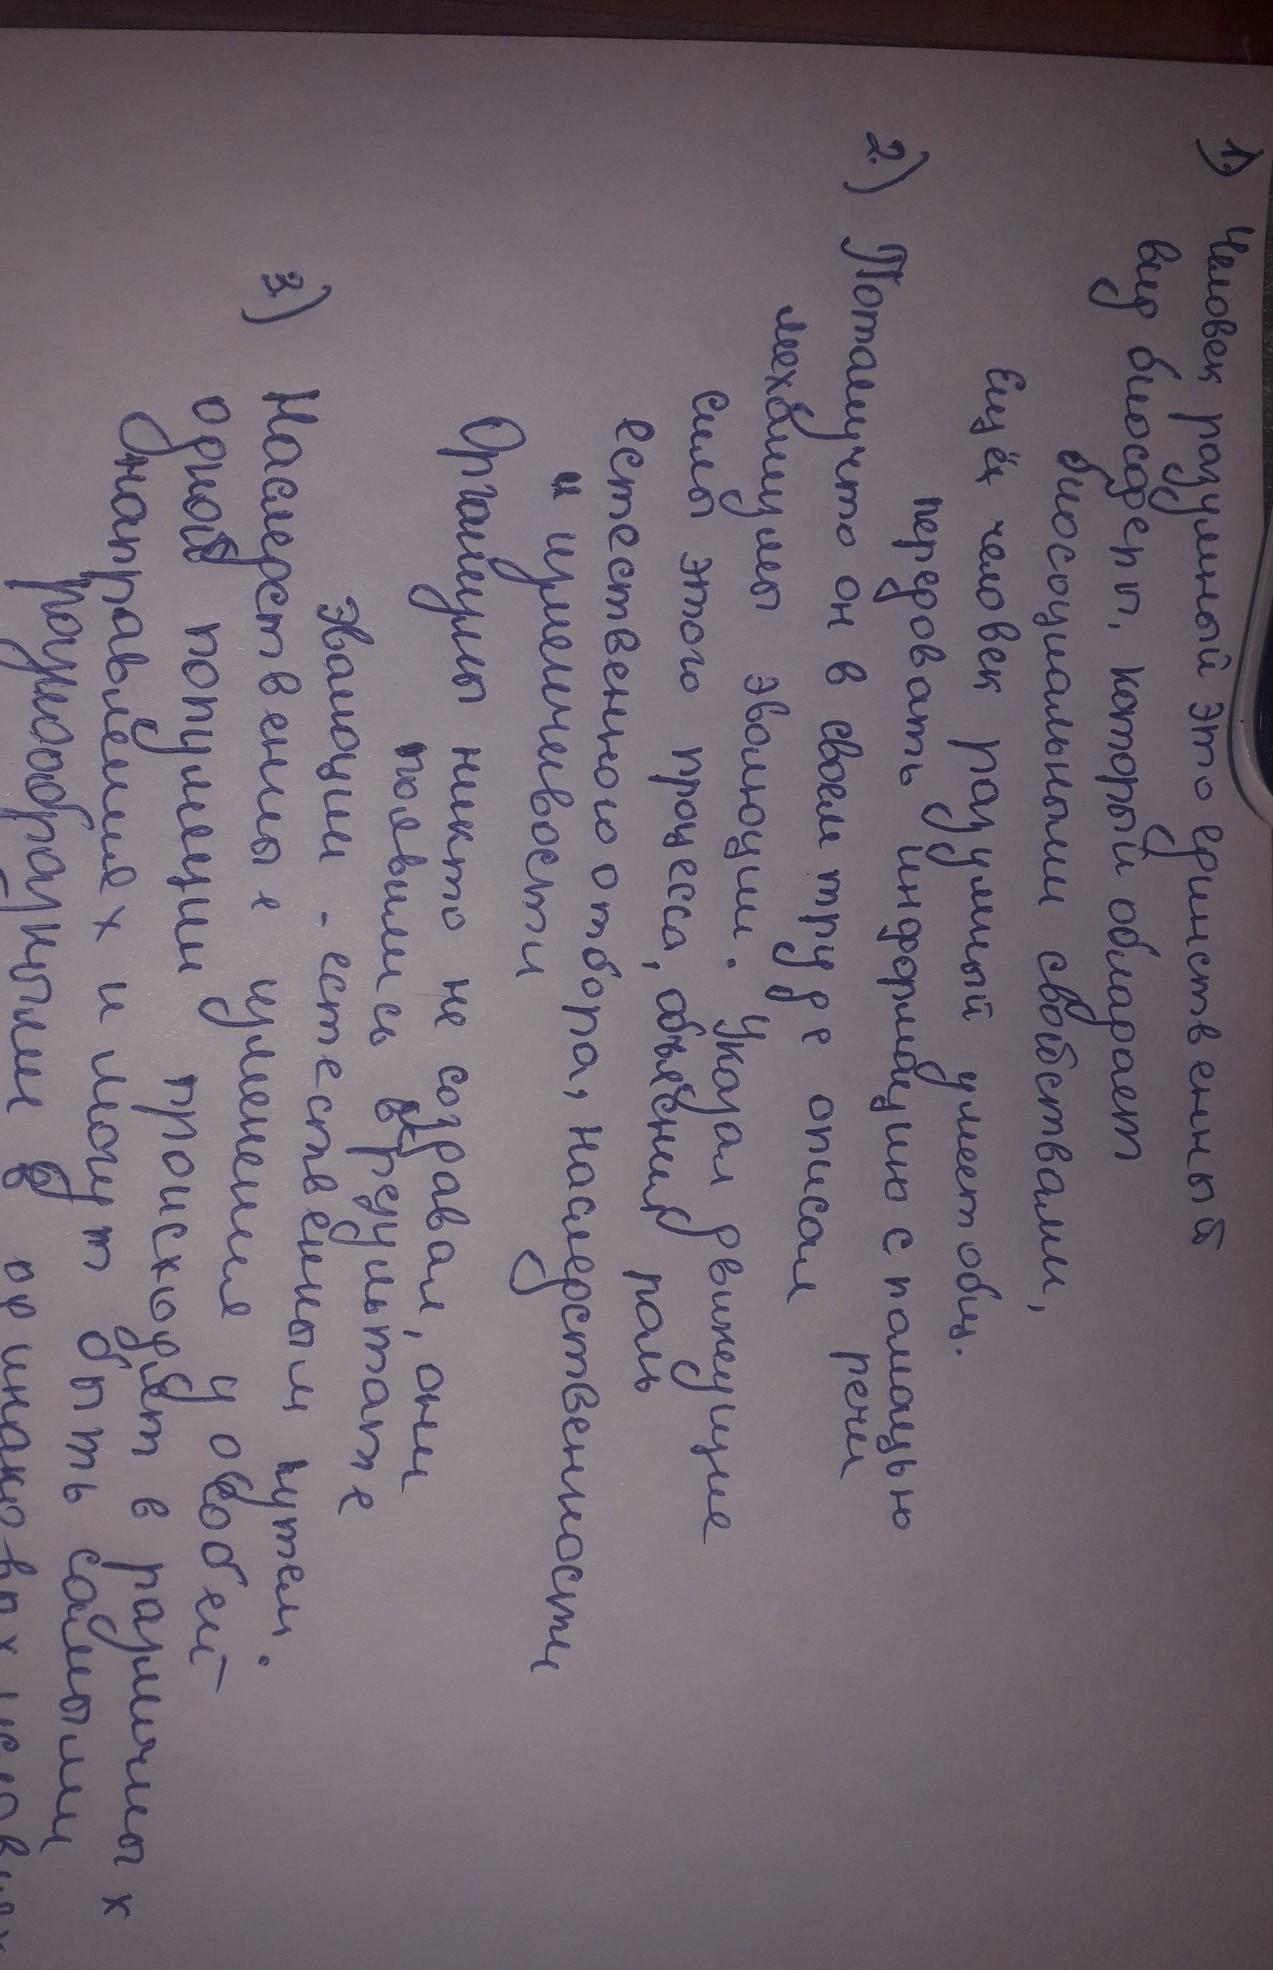 1) Человек разумный это единственный
вид биосферы, который обладает
биосоциальными свойствами,
Ещё человек разумный умеет общ.
передовать информацию с помощью
речи
2) Потомучто он в своем труде описал
механизмы эволюции. Указал движущие
силы этого процесса, объяснил роль
естественного отбора, наследственности
и изменчивости
Организмы никто не создавал, они
появились в результате
эволюции - естественным путем.
3) Наследственные изменения у особей
одной популяции происходят в различных
направлениях и могут быть самыми
разнообразными в одинаковых условиях